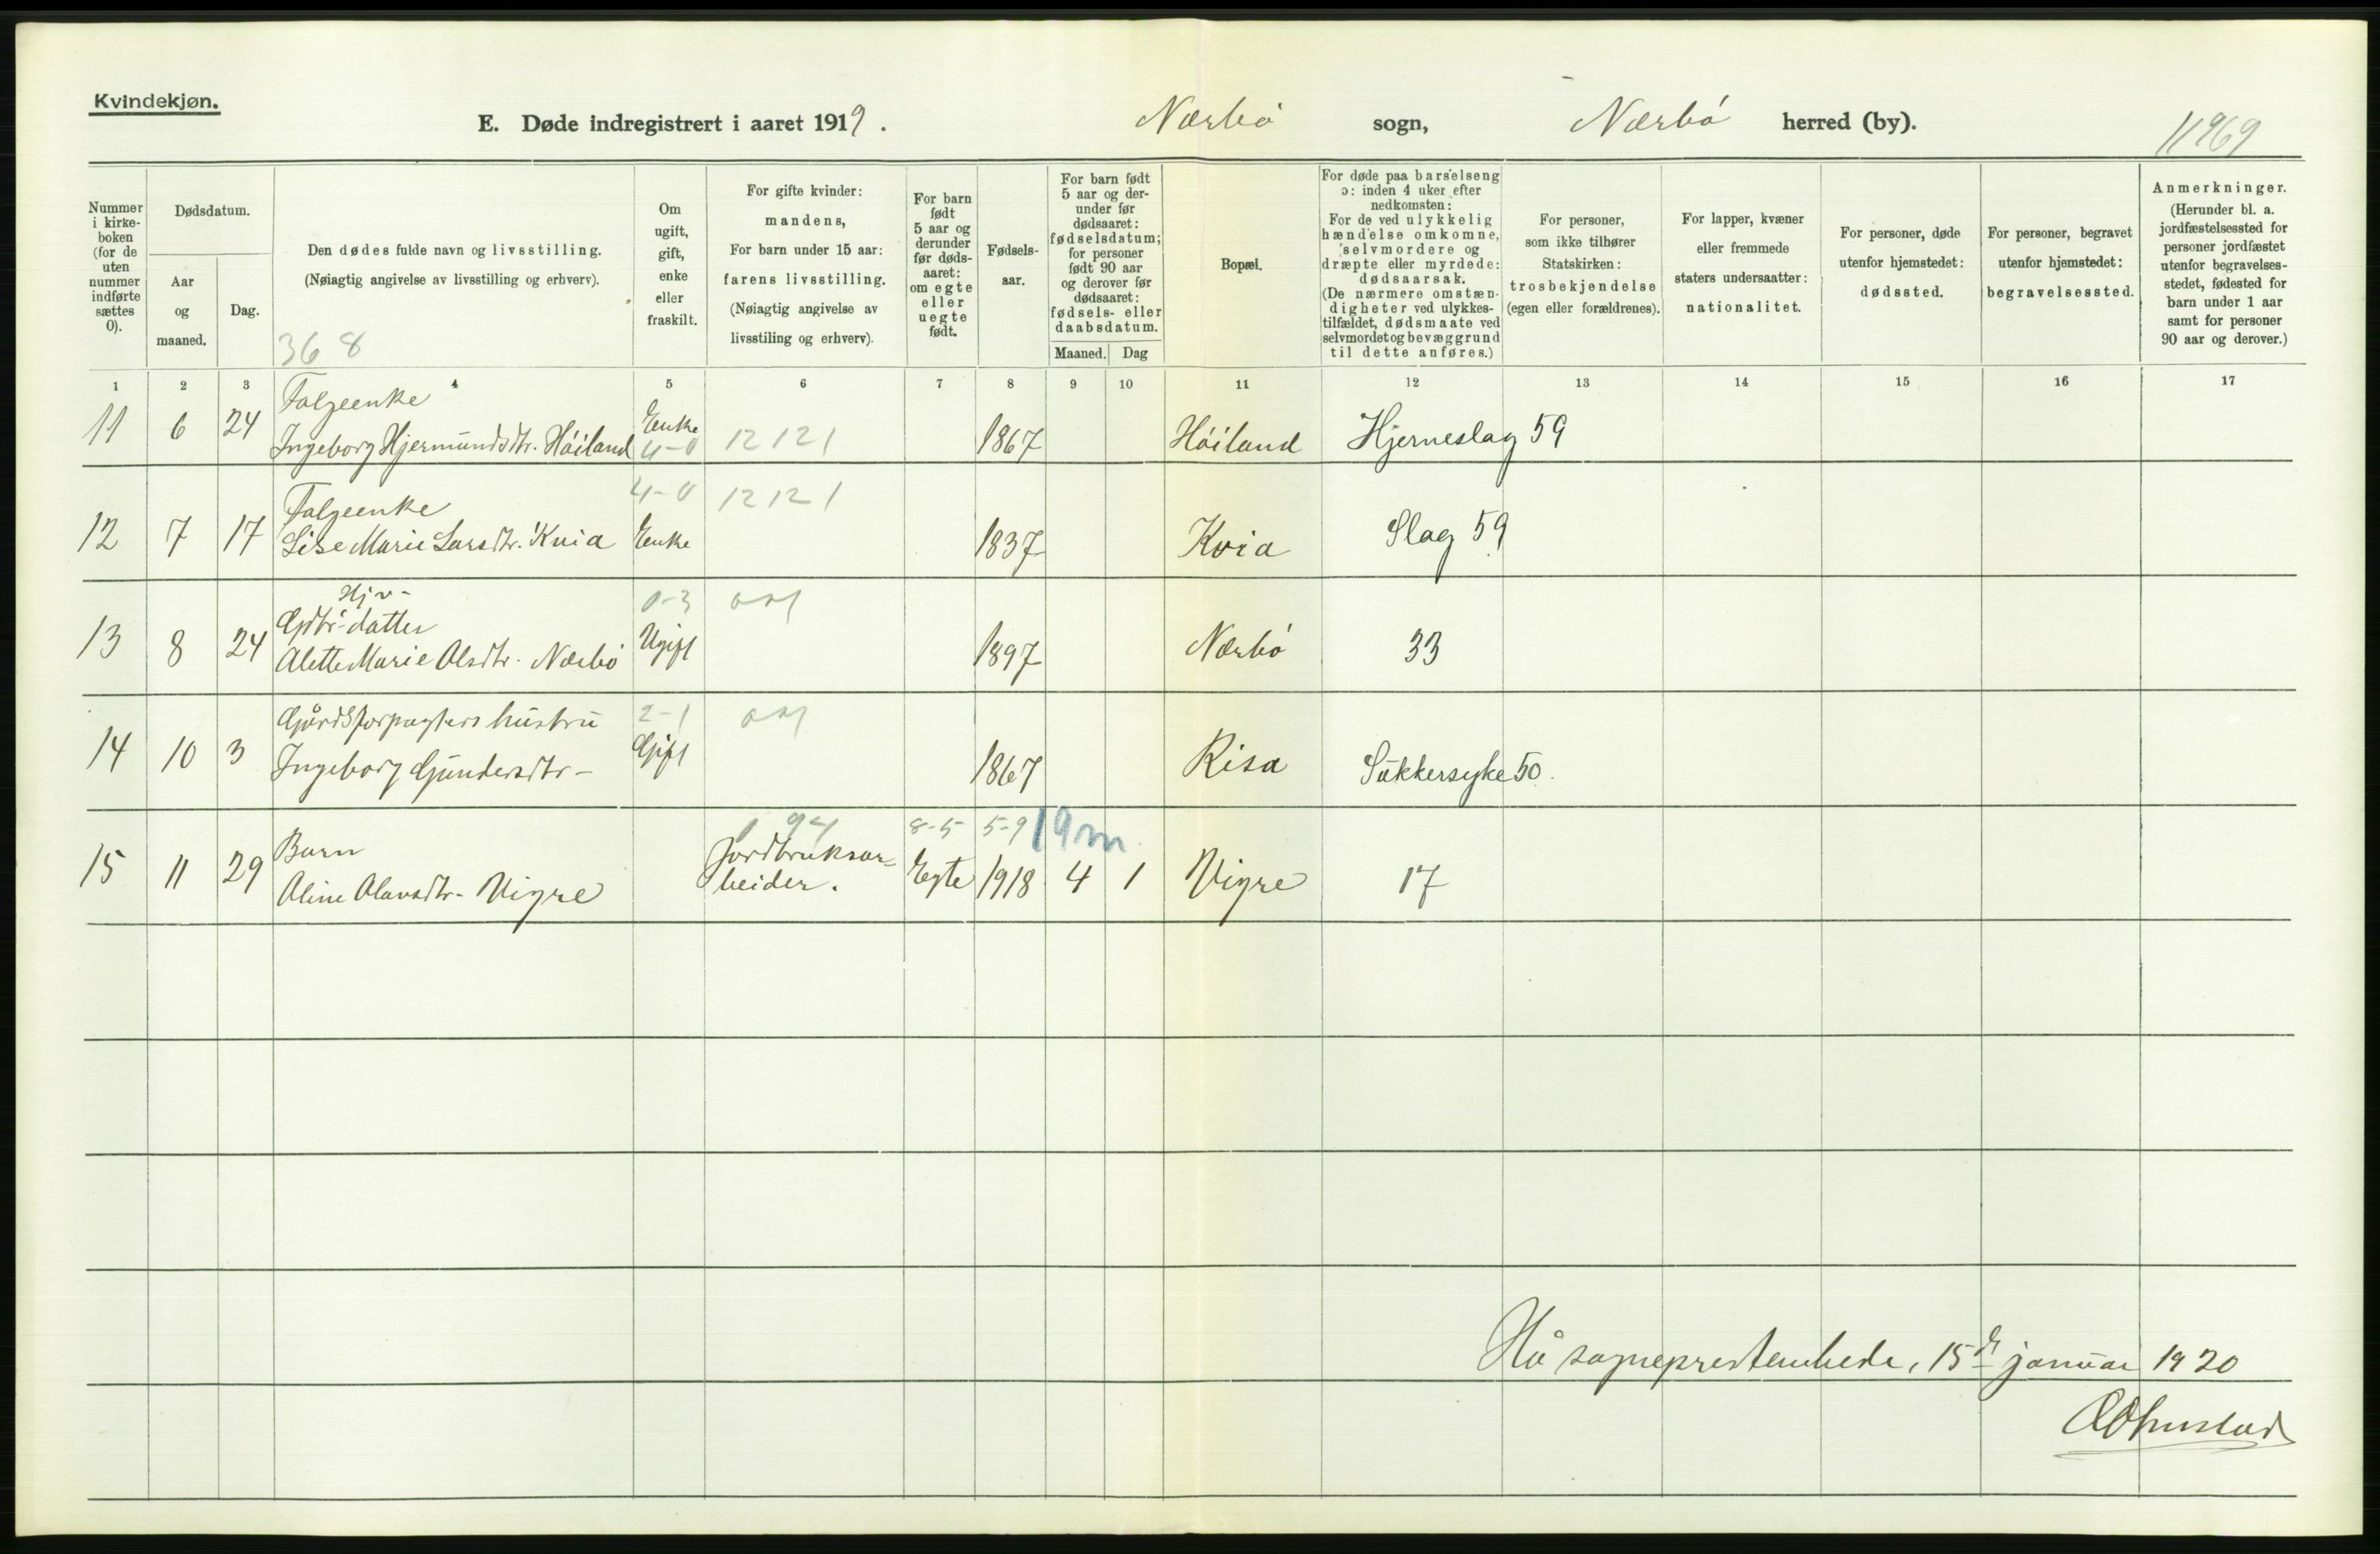 Kvindekjøn.
E. Døde indregistrert i aaret 1919. Nærbø sogn, Nærbø herred (by). 11969
Nummer i kirke-boken (for de uten nummer indførte sættes 0).
Dødsdatum.
Aar og maaned.
Dag.
Den dødes fulde navn og livsstilling.
(Nøiagtig angivelse av livsstilling og erhverv).
368
Om ugift, gift, enke eller fraskilt.
For gifte kvinder: mandens,
For barn under 15 aar: farens livsstilling.
(Nøiagtig angivelse av livsstiling og erhverv).
For barn født 5 aar og derunder før døds-aaret: om egte eller uegte født.
Fødsels-aar.
For barn født 5 aar og der-under før dødsaaret: fødselsdatum; for personer født 90 aar og derover før dødsaaret: fødsels- eller daabsdatum.
Maaned. Dag
Bopæl.
For døde paa barselseng ɔ: inden 4 uker efter nedkomsten:
For de ved ulykkelig hændelse omkomne, selvmordere og dræpte eller myrdede: dødsaarsak.
(De nærmere omstæn-digheter ved ulykkes-tilfældet, dødsmaate ved selvmordet og bevæggrund til dette anføres.)
For personer, som ikke tilhører Statskirken: trosbekjendelse (egen eller forældrenes).
For lapper, kvæner eller fremmede staters undersaatter: nationalitet.
For personer, døde utenfor hjemstedet: dødssted.
For personer, begravet utenfor hjemstedet: begravelsessted.
Anmerkninger.
(Herunder bl. a. jordfæstelsessted for personer jordfæstet utenfor begravelses-stedet, fødested for barn under 1 aar samt for personer 90 aar og derover.)
1 2 3 4 5 6 7 8 9 10 11 12 13 14 15 16 17
Folgeenke
11 6 24 Ingeborg Hjermundsdtr. Høiland Enke 4-0 12121 1867 Høiland Hjerneslag 59
Folgeenke 4-0 12121
12 7 17 Lise Marie Larsdtr. Kvia Enke 1837 Kvia Slag 59
Hjv-
Gdbr-datter 0-3
13 8 24 Alette Marie Olsdtr. Nærbø Ugift 1897 Nærbø 33
Gårdsforpagters hustru 2-1
14 10 3 Ingeborg Gundersdtr- Gift 1867 Risa Sukkersyke 50.
Barn 94 8-5 5-9 19m.
15 11 29 Aline Olavsdtr- Vigre Jordbruksar-beider. Egte 1918 4 1 Vigre 17
Hå sogneprestembede, 15de januar 1920